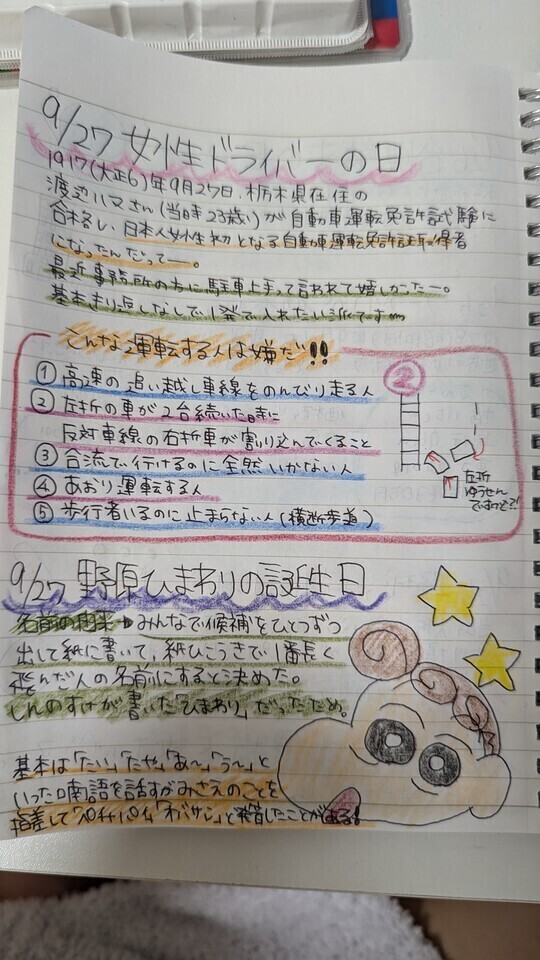 9/27 女性ドライバーの日
1917(大正6)年9月27日、栃木県在住の
渡辺ハマさん(当時23歳)が自動車運転免許試験に
合格し、日本人女性初となる自動車運転免許証取得者
になったんだってー。
最近事務所の方に駐車上手って言われて嬉しかったー。
基本きり返しなしで1発で入れたい派ですm
こんな運転する人は嫌だ!!
① 高速の追い越し車線をのんびり走る人
② 左折の車が2台続いた時に
反対車線の右折車が割り込んでくること
③ 合流で行けるのに全然いかない人
④ あおり運転する人
⑤ 歩行者いるのに止まらない人(横断歩道)
②
左折
ゆうせん
ですけど?!
9/27 野原ひまわりの誕生日
名前の由来→みんなで候補をひとつずつ
出して紙に書いて、紙ひこうきで1番長く
飛んだ人の名前にすると決めた。
しんのすけが書いた「ひまわり」だったため。
基本は「たい」「たや」「あ〜」「う〜」と
いった喃語を話すがみさえのことを
指差して「パイチパイ」「オバサン」と発音したことがある!